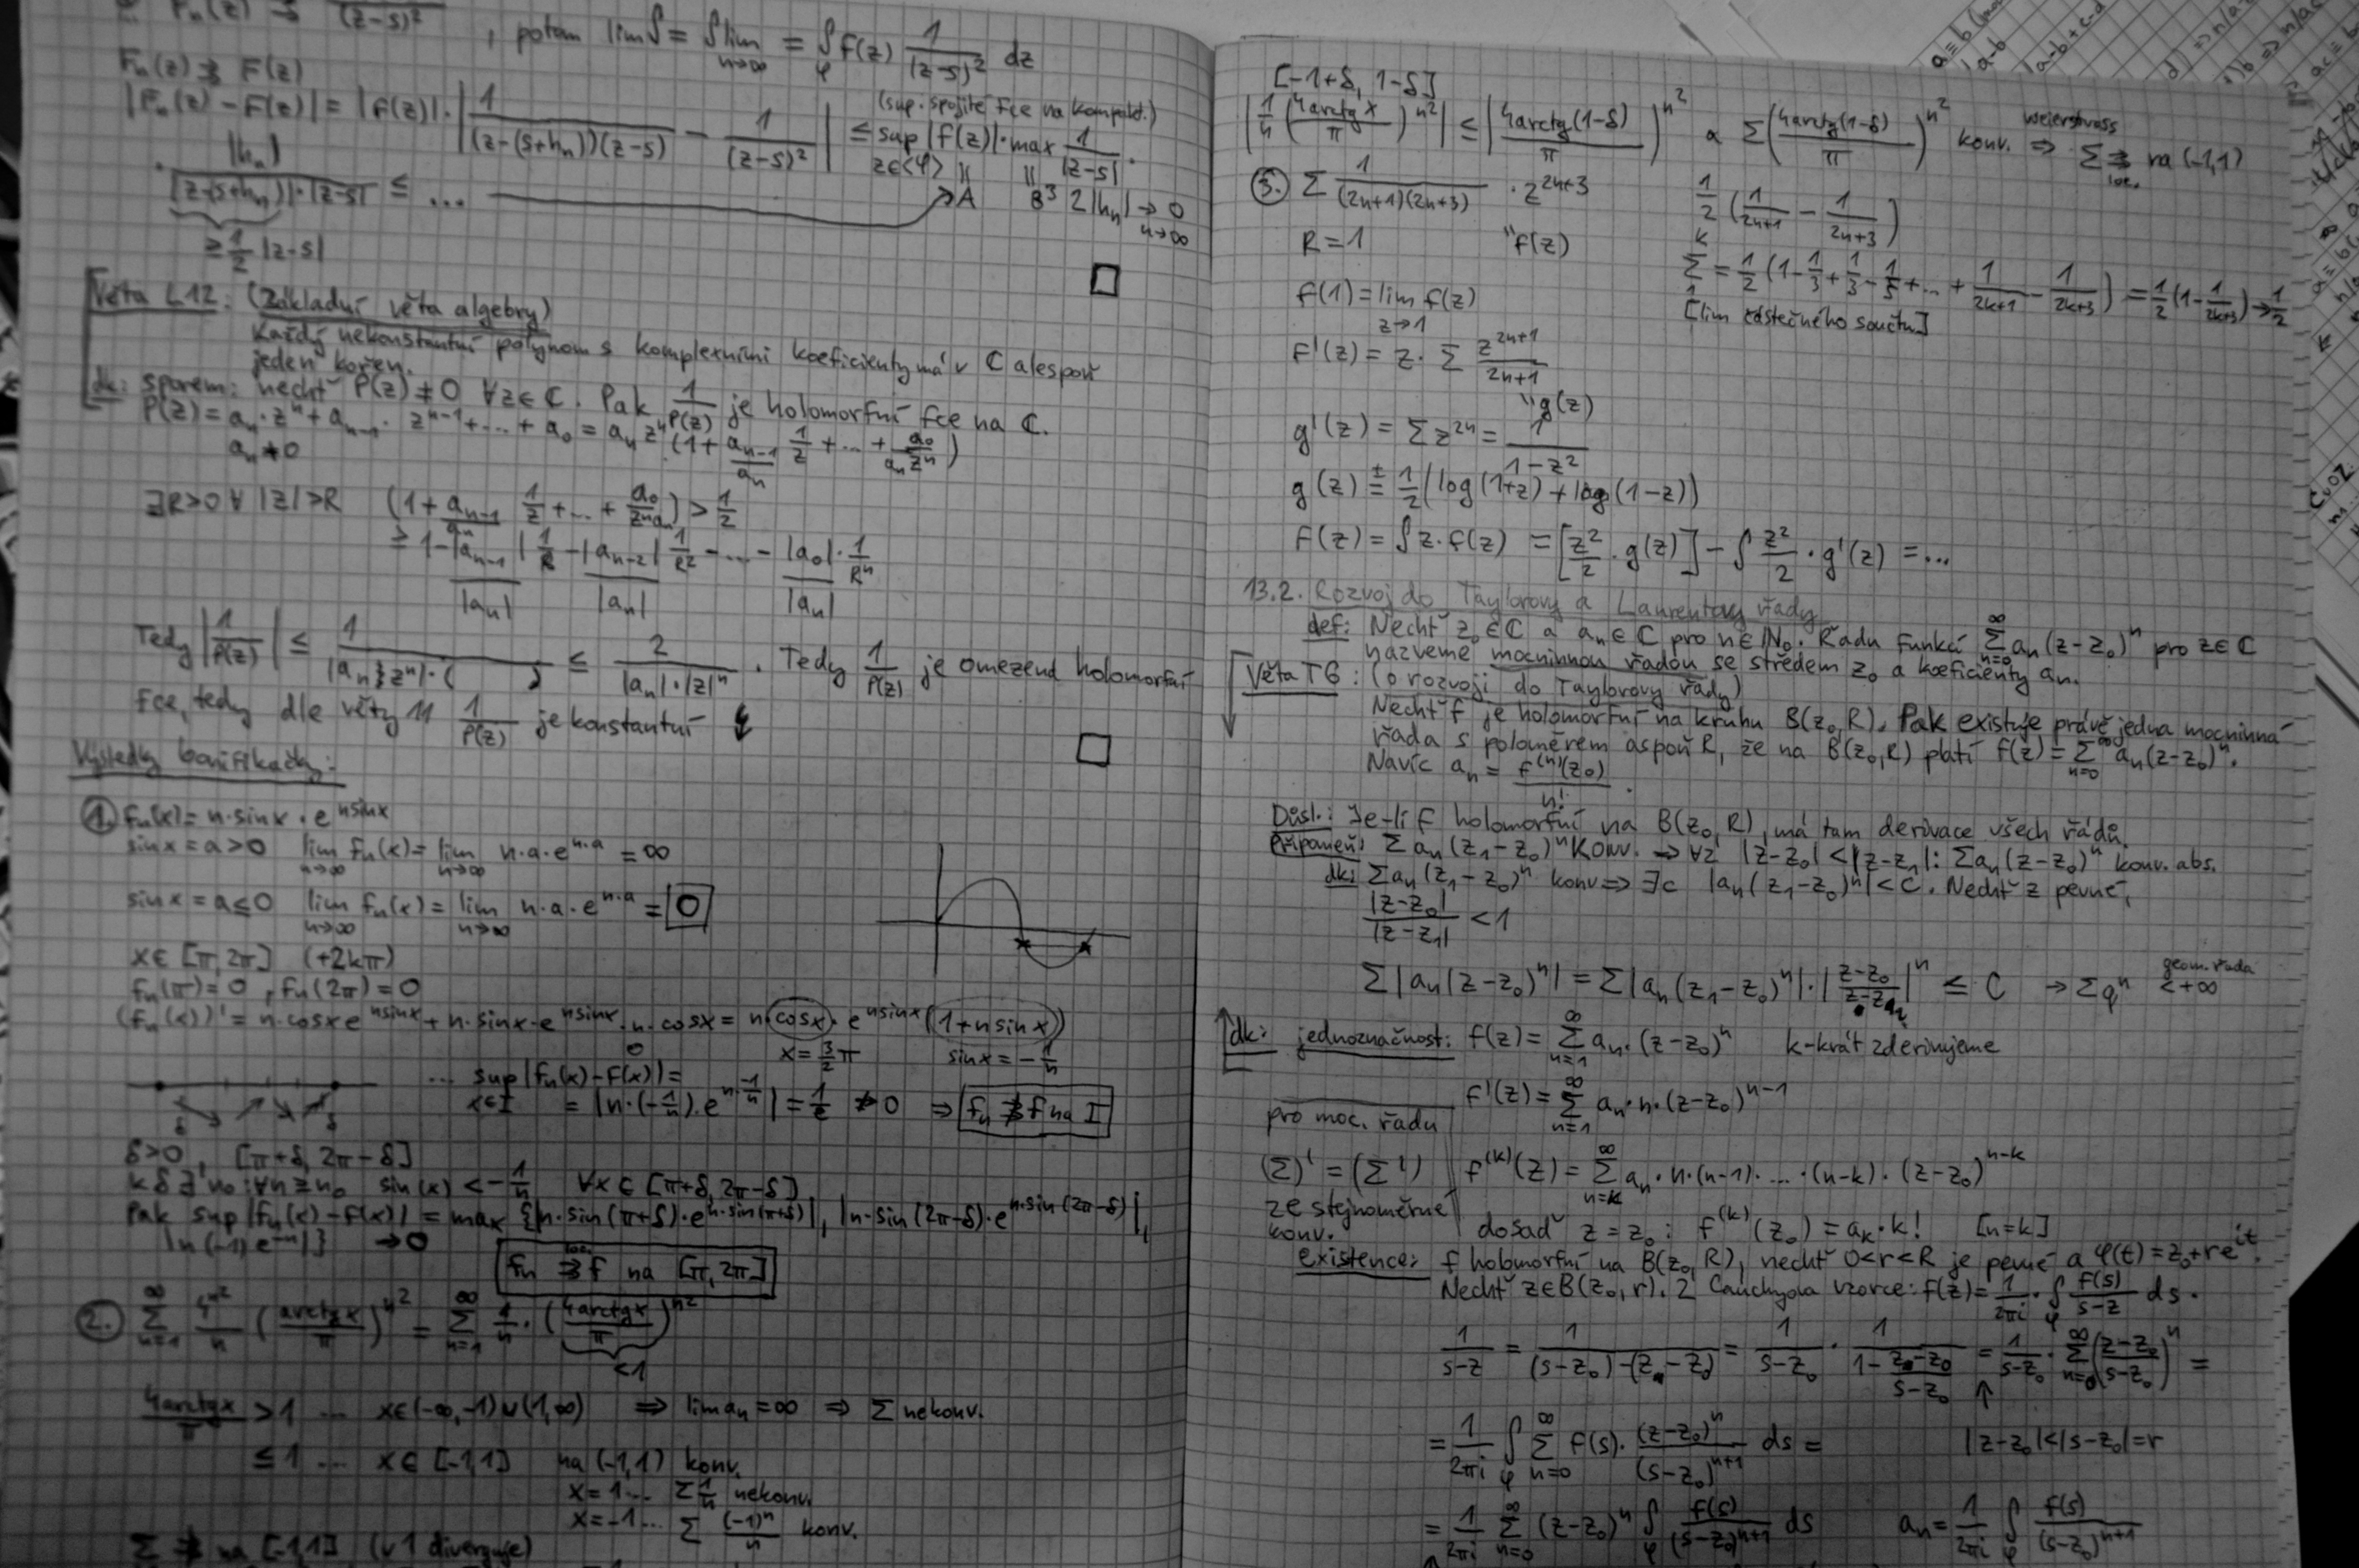 , potom lim ∫ = ∫ lim n→∞ = ∫φ f(z) 1/(z-s)² dz
Fn(z) ⇉ F(z)
|Fn(z) - F(z)| = |f(z)| · |1/((z-(s+hn))(z-s)) - 1/(z-s)²| ≤ sup z∈<φ> |f(z)| · max 1/|z-s| ·
(sup. spojité fce na kompakt.)
· |hn|/(|z-(s+hn)|·|z-s|) ≤ ... A B³ 2|hn| → 0 n→∞
≥ 1/2 |z-s|
Věta L12: (Základní věta algebry)
Každý nekonstantní polynom s komplexními koeficienty má v ℂ alespoň
jeden kořen.
dk: sporem: nechť P(z) ≠ 0 ∀z∈ℂ. Pak 1/P(z) je holomorfní fce na ℂ.
P(z) = an·zⁿ + an-1·zⁿ⁻¹ + ... + a0 = an zⁿ (1 + an-1/an 1/z + ... + a0/(an zⁿ))
an ≠ 0
∃R>0 ∀ |z|>R (1 + an-1/an 1/z + ... + a0/(zⁿan)) > 1/2
≥ 1 - |an-1|/|an| 1/R - |an-2|/|an| 1/R² - ... - |a0|/|an| · 1/Rⁿ
Tedy |1/P(z)| ≤ 1/(|an zⁿ|·( )) ≤ 2/(|an|·|z|ⁿ). Tedy 1/P(z) je omezená holomorfní
fce, tedy dle věty 11 1/P(z) je konstantní ↯
Výsledky bonifikačky:
1. fn(x) = n·sinx·e^(nsinx)
sinx = a > 0 lim n→∞ fn(x) = lim n→∞ n·a·e^(n·a) = ∞
sinx = a ≤ 0 lim n→∞ fn(x) = lim n→∞ n·a·e^(n·a) = 0
x∈[π,2π] (+2kπ)
fn(π) = 0, fn(2π) = 0
(fn(x))' = n·cosx e^(nsinx) + n·sinx·e^(nsinx)·n·cosx = n·cosx·e^(nsinx)(1+nsinx)
x = 3/2π sinx = -1/n
... sup x∈I |fn(x) - f(x)| =
= |n·(-1/n)·e^(n·-1/n)| = 1/e ↛ 0 ⇒ fn ⇉̸ f na I
δ>0, [π+δ, 2π-δ]
k δ ∃ n0: ∀n≥n0 sin(x) < -1/n ∀x∈[π+δ, 2π-δ]
Pak sup |fn(x) - f(x)| = max {|n·sin(π+δ)·e^(n·sin(π+δ))|, |n·sin(2π-δ)·e^(n·sin(2π-δ))|,
|n(-1)e⁻ⁿ|} → 0
fn loc. ⇉ f na [π,2π]
2. ∞Σn=1 4^(n²)/n (arctgx/π)^(n²) = ∞Σn=1 1/n · (4arctgx/π)^(n²)
<1
4arctgx/π > 1 ... x∈(-∞,-1)∪(1,∞) ⇒ lim an = ∞ ⇒ Σ nekonv.
≤ 1 ... x∈[-1,1] na (-1,1) konv.
x=1 ... Σ 1/n nekonv.
x=-1 ... Σ (-1)ⁿ/n konv.
Σ ⇉̸ na [-1,1] (v 1 diverguje)
[-1+δ, 1-δ]
|1/n (4arctgx/π)^(n²)| ≤ |4arctg(1-δ)/π|^(n²) a Σ(4arctg(1-δ)/π)^(n²) konv. weierstrass ⇒ Σ ⇉ loc. na (-1,1)
3. Σ 1/((2n+1)(2n+3)) · z^(2n+3) 1/2 (1/(2n+1) - 1/(2n+3))
R = 1 "f(z)
kΣ1 = 1/2 (1 - 1/3 + 1/3 - 1/5 + ... + 1/(2k+1) - 1/(2k+3)) = 1/2 (1 - 1/(2k+3)) → 1/2
f(1) = lim z→1 f(z) [lim částečného součtu]
f'(z) = z · Σ z^(2n+1)/(2n+1)
"g(z)
g'(z) = Σ z^(2n) = 1/(1-z²)
g(z) ± = 1/2 (log(1+z) + log(1-z))
f(z) = ∫ z·f(z) = [z²/2 · g(z)] - ∫ z²/2 · g'(z) = ...
13.2. Rozvoj do Taylorovy a Laurentovy řady
def: Nechť z0∈ℂ a an∈ℂ pro n∈ℕ0. Řadu funkcí ∞Σn=0 an(z-z0)ⁿ pro z∈ℂ
nazveme mocninnou řadou se středem z0 a koeficienty an.
Věta T6: (o rozvoji do Taylorovy řady)
Nechť f je holomorfní na kruhu B(z0,R). Pak existuje právě jedna mocninná
řada s poloměrem aspoň R, že na B(z0,R) platí f(z) = ∞Σn=0 an(z-z0)ⁿ.
Navíc an = f⁽ⁿ⁾(z0)/n!
Důsl.: Je-li f holomorfní na B(z0,R), má tam derivace všech řádů.
Připomeň: Σ an(z1-z0)ⁿ konv. ⇒ ∀z |z-z0| < |z-z1|: Σ an(z-z0)ⁿ konv. abs.
dk: Σ an(z1-z0)ⁿ konv ⇒ ∃c |an(z1-z0)ⁿ| < C. Nechť z pevné,
|z-z0|/|z-z1| < 1
Σ|an(z-z0)ⁿ| = Σ|an(z1-z0)ⁿ|·|(z-z0)/(z-z1)|ⁿ ≤ C → Σqⁿ geom. řada < +∞
dk: jednoznačnost: f(z) = ∞Σn=1 an·(z-z0)ⁿ k-krát zderivujeme
f'(z) = ∞Σn=1 an·n·(z-z0)ⁿ⁻¹
pro moc. řadu
(Σ)' = (Σ') f⁽ᵏ⁾(z) = ∞Σn=k an·n·(n-1)·...·(n-k)·(z-z0)ⁿ⁻ᵏ
ze stejnoměrné
konv. dosaď z = z0: f⁽ᵏ⁾(z0) = ak·k! [n=k]
existence: f holomorfní na B(z0,R), nechť 0<r<R je pevné a φ(t) = z0+re^(it).
Nechť z∈B(z0,r). Z Cauchyova vzorce: f(z) = 1/(2πi) · ∫φ f(s)/(s-z) ds.
1/(s-z) = 1/((s-z0)-(z-z0)) = 1/(s-z0) · 1/(1-(z-z0)/(s-z0)) = 1/(s-z0) · ∞Σn=0 ((z-z0)/(s-z0))ⁿ =
= 1/(2πi) ∫φ ∞Σn=0 f(s)·(z-z0)ⁿ/(s-z0)ⁿ⁺¹ ds = |z-z0|<|s-z0|=r
= 1/(2πi) ∞Σn=0 (z-z0)ⁿ ∫φ f(s)/(s-z0)ⁿ⁺¹ ds an = 1/(2πi) ∫φ f(s)/(s-z0)ⁿ⁺¹